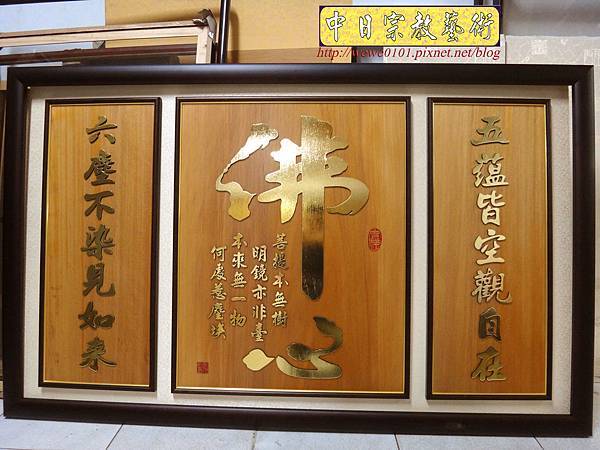 中日宗教藝術
http://wewe0101.pixnet.net/blog
五蘊皆空觀自在
佛心
菩提本無樹
明鏡亦非臺
本來無一物
何處惹塵埃
六塵不染見如來